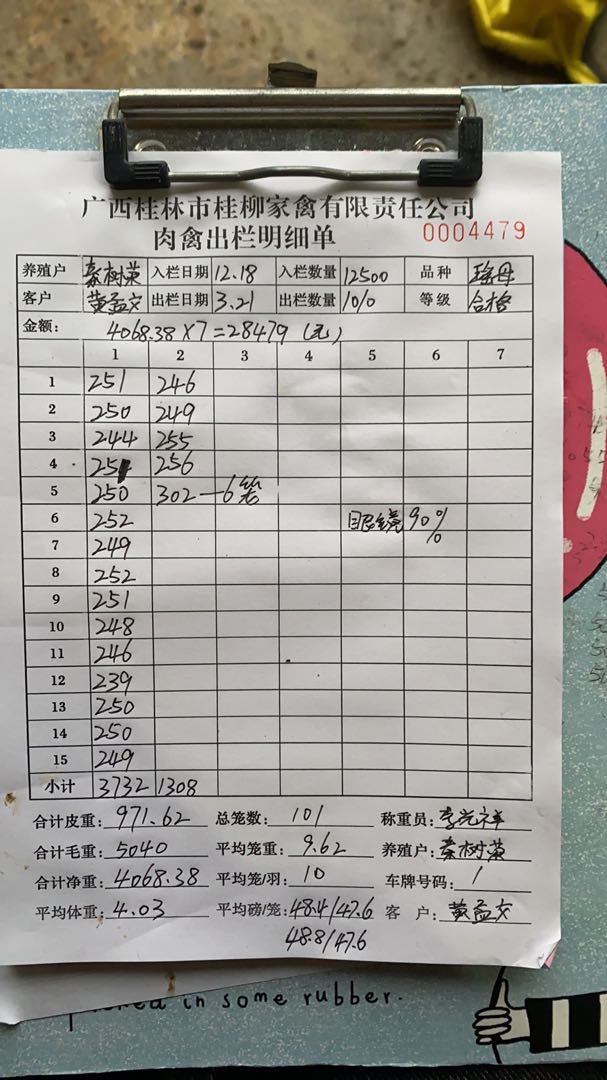 广西桂林市桂柳家禽有限责任公司
肉禽出栏明细单 0004479
养殖户 秦树英 入栏日期 12.18 入栏数量 12500 品种 瑶母
客户 黄孟交 出栏日期 3.21 出栏数量 1010 等级 合格
金额: 4068.38×7=28479 (元)
1 2 3 4 5 6 7
1 251 246
2 250 249
3 244 255
4 251 256
5 250 302—6笼
6 252 眼镜亮 90%
7 249
8 252
9 251
10 248
11 246
12 239
13 250
14 250
15 249
小计 3732 1308
合计皮重: 971.62 总笼数: 101 称重员:
合计毛重: 5040 平均笼重: 9.62 养殖户: 秦树英
合计净重: 4068.38 平均笼/羽: 10 车牌号码: 1
平均体重: 4.03 平均磅/笼: 48.4/47.6 客户: 黄孟交
48.8/47.6
in some rubber.